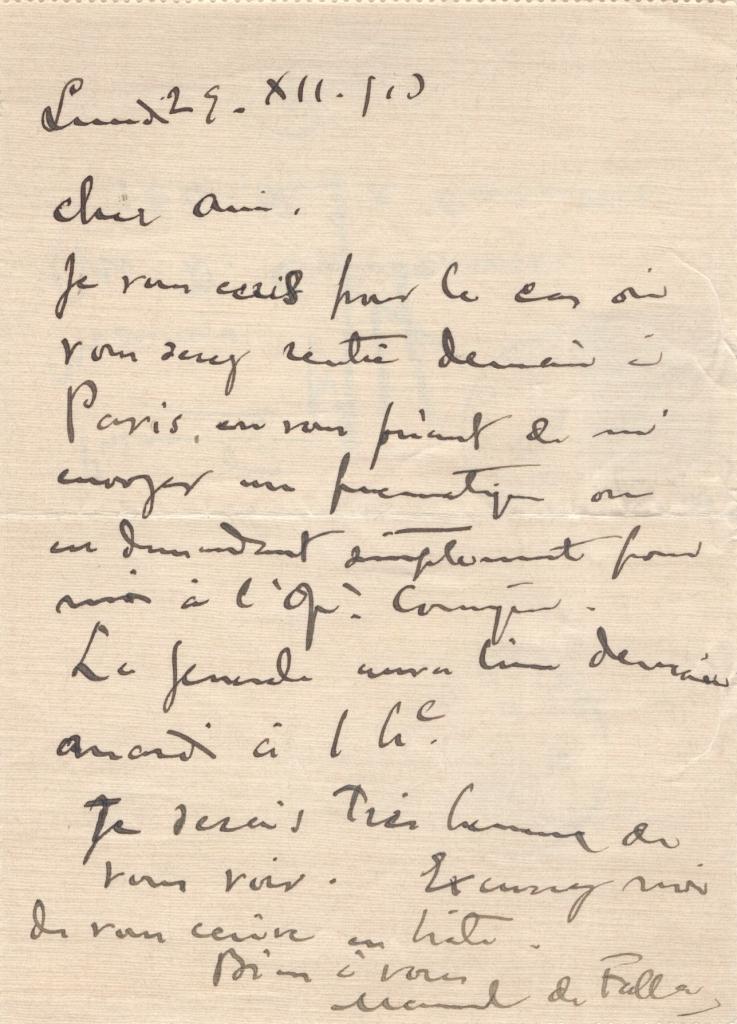 Lundi 29. XII. 913
cher ami.
Je vous écris pour le cas où
vous serez rentré demain à
Paris, en vous priant de m'
envoyer un pneumatique ou
en demandant simplement pour
moi à l'Op. Comique.
La générale aura lieu demain
mardi à 1 h.
Je serais très heureux de
vous voir. Excusez moi
de vous écrire en hâte.
Bien à vous
Manuel de Falla